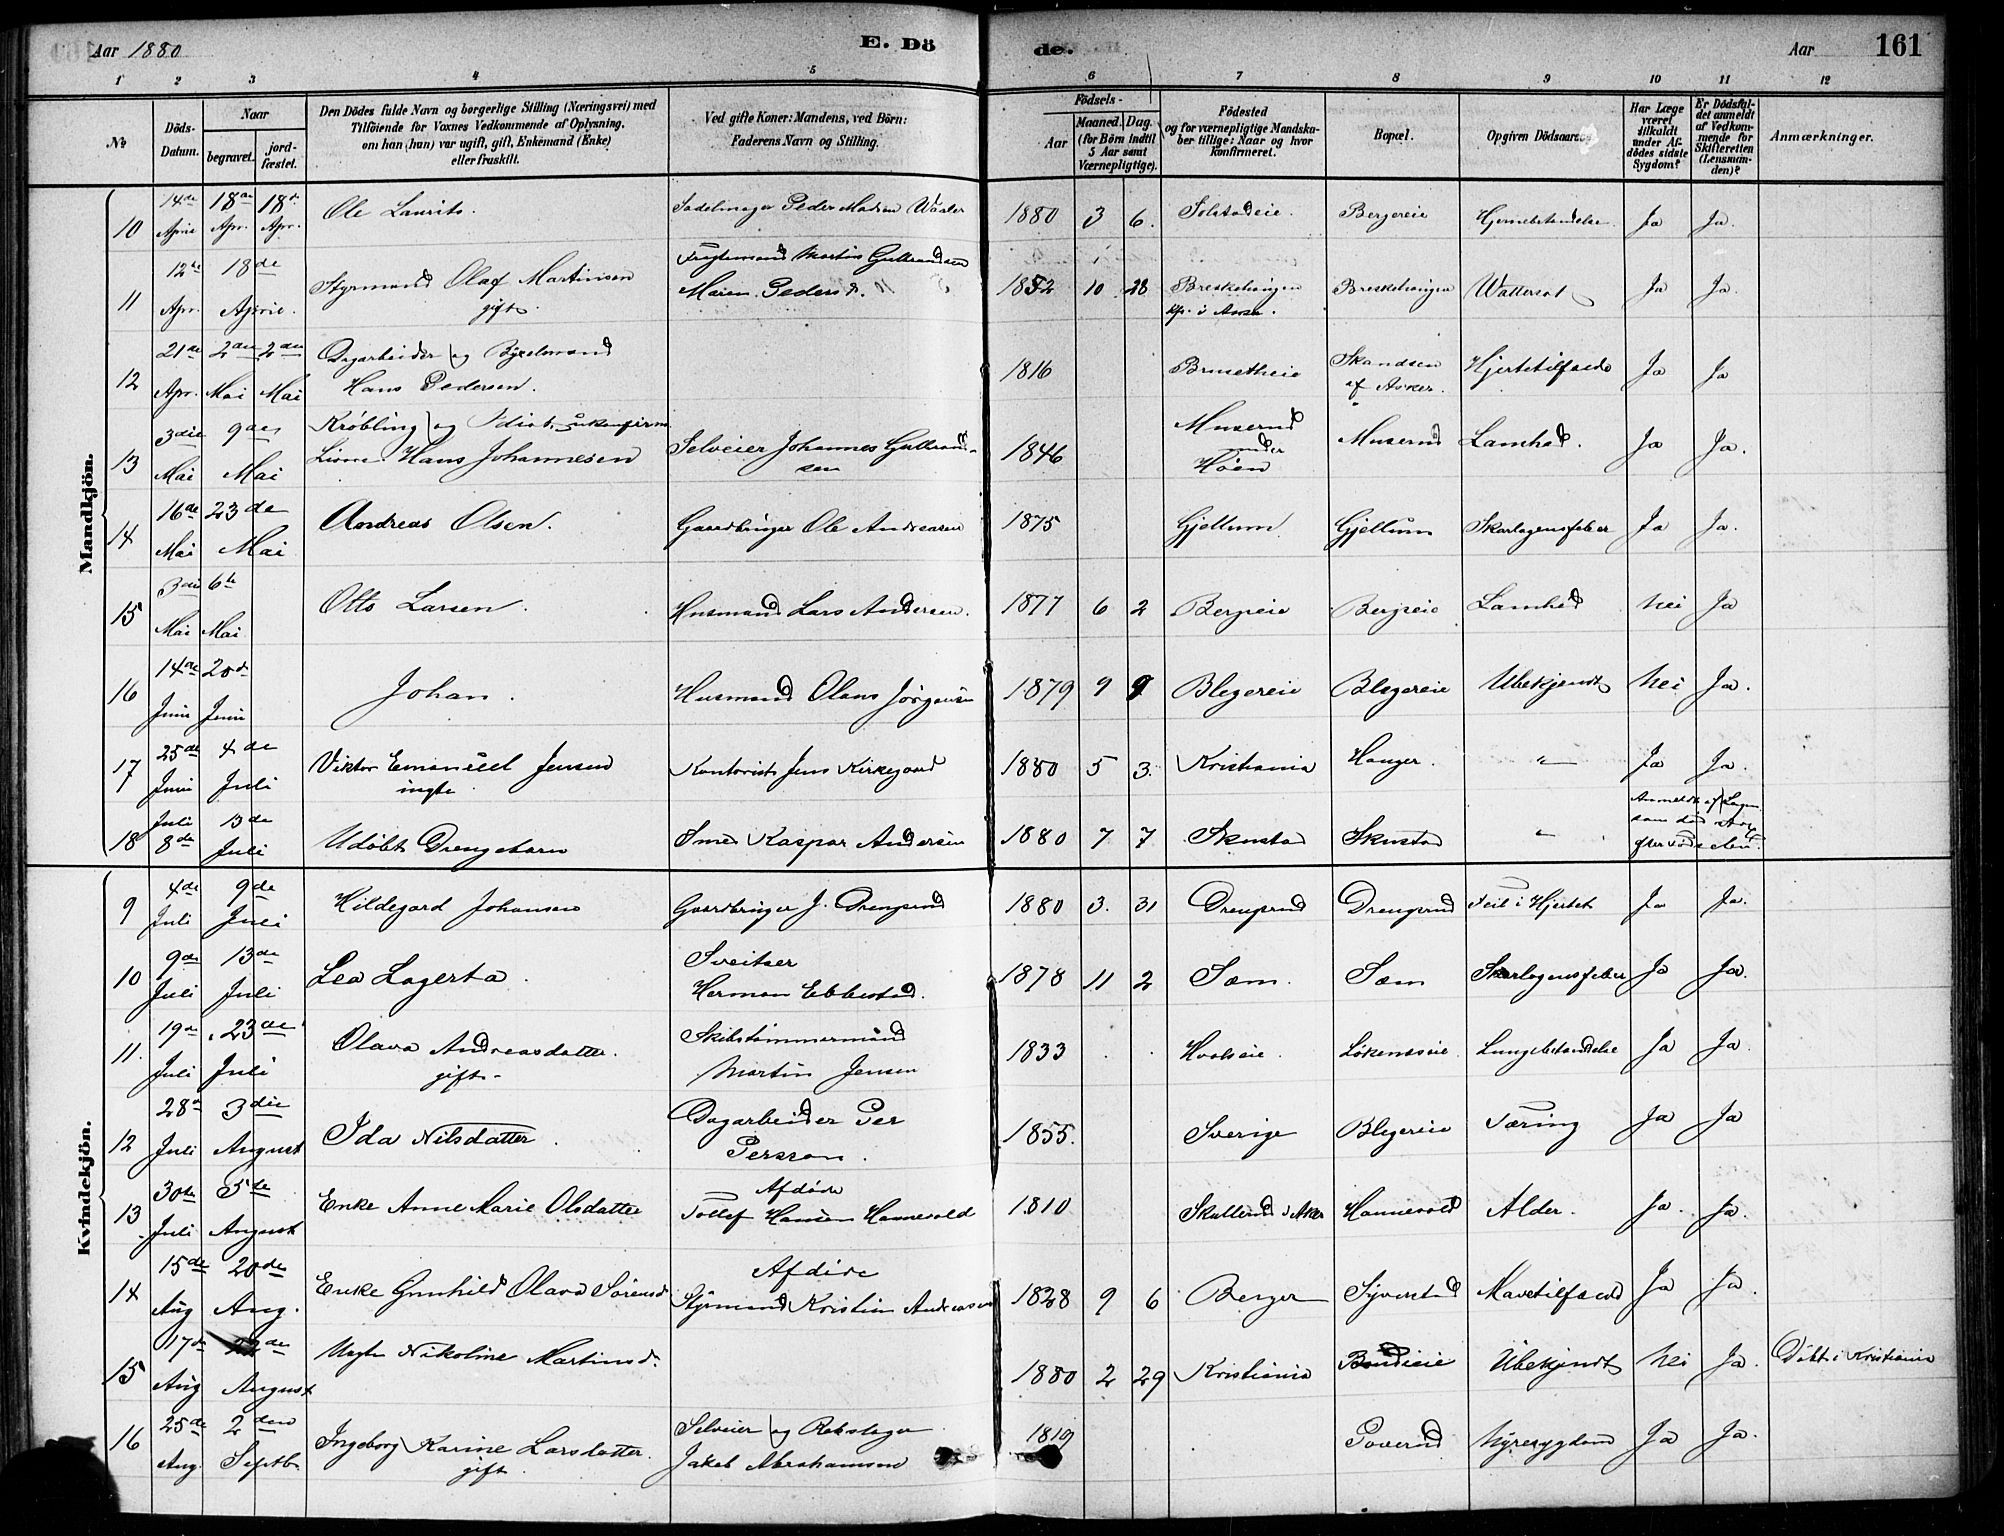 Aar 1880
E. Dö
de.
Aar
161
1 2 3 4 5 6 7 8 9 10 11 12
No
Döds-
Datum.
Naar
begravet.
jord-
fæstet.
Den Dödes fulde Navn og borgerlige Stilling (Næringsvei) med
Tilföiende for Voxnes Vedkommende af Oplysning.
om han (hun) var ugift, gift, Enkemand (Enke)
eller fraskilt.
Ved gifte Koner: Mandens, ved Börn:
Faderens Navn og Stilling.
Födsels-
Aar
Maaned. Dag.
(for Börn indtil
5 Aar samt
Værnepligtige).
Födested
og for værnepligtige Mandska-
ber tillige: Naar og hvor
konfirmeret.
Bopæl.
Opgiven Dödsaarsag
Har Læge
været
tilkaldt
under Af-
dödes sidste
Sygdom?
Er Dödsfal-
det anmeldt
af Vedkom-
mende for
Skifteretten
(Lensman-
den)?
Anmærkninger.
Mandkjön.
10 14de April 18de Apr. 18de Apr. Ole Laurits. Sadelmager Peder Madsen Waaler 1880 3 6. Solstadeie. Bergereie Hjernebetændelse Ja Ja.
11 12te Apr. 18de April. Styrmand Olaf Martinsen gift. Fragtemand Martin Gulbrandsen Maren Pedersd. 1852 10 28 Breskehaugen Breskehaugen Wattersot Ja Ja.
12 21de Apr. 2den Mai 2den Mai Dagarbeider og Bygselmand Hans Pedersen. 1816 Brusetheie Skandsen af Asker. Hjertetilfælde Ja Ja
13 3die Mai 9de Mai Krøbling og Idiot ukonfirm. Hans Johannesen Selveier Johannes Gulbrand-
sen 1846 Muserud under Høen Muserud Lamhed. Ja Ja.
14 16de Mai 23de Mai Andreas Olsen. Gaardbruger Ole Andreasen 1875 Gjellum Gjellum Skarlagensfeber Ja Ja.
15 3die Mai 6te Mai Otto Larsen. Husmand Lars Andersen. 1877 6 2 Bergseie Bergseie Lamhed Nei Ja
16 14de Juni 20de Juni Johan. Husmand Olaus Jörgensen 1879 9 9 Blegereie Blegereie Ubekjendt Nei Ja.
17 25de Juni 4de Juli Viktor Emanuel Jensen Kontorist Jens Kirkegaard 1880 5 3. Kristiania Hauger. " Ja Ja.
18 Juli 8de 13de Juli Udöbt Drengebarn Smed Kaspar Andersen 1880 7 7 Skustad Skustad " Anmeldt af
Kvindekjön.
9 4de Juli 9de Juli Hildegard Johansen Gaardbruger J. Drengsrud 1880 3. 31 Drengsrud Drengsrud Feil i Hjertet Ja Ja.
10 9de Juli 13de Juli Lea Lagerta. Sveitser Herman Ebbestad. 1878 11 2 Sæm. Sæm Skarlagensfeber Ja Ja.
11. 19de Juli 23de Juli Olava Andreasdatter. gift. Skibstömmermand Martin Jensen 1833 Hvalseie. Løkeneseie Lungebetændelse Ja Ja.
12 28de Juli 3die August Ida Nilsdatter. Dagarbeider Per Persson. 1855. Sverige Blegereie Tæring Ja Ja
13 30te Juli 5te August Enke Anne Marie Olsdatter Afdöde Tollef Hansen Hannevold 1810 Skullerud i Aker Hannevold Alder. Ja. Ja.
14 15de Aug 20de Aug. Enke Gunhild Olava Sörensd. Afdöde Styrmand Kristian Andreasen 1828 9 6 Berger Syverstad Mavetilfælde Ja Ja.
15 17de Aug 22de August Uægte Nikoline Martinsd. 1880 2 29 Kristiania Bondieie Ubekjendt Nei Ja. Döbt i Kristiania
16 25de Aug. 2den Septb. Ingeborg Karine Larsdatter. gift. Selveier og Rebslager Jakob Abrahamsen 1819 Goverud Nyresygdom Ja Ja.